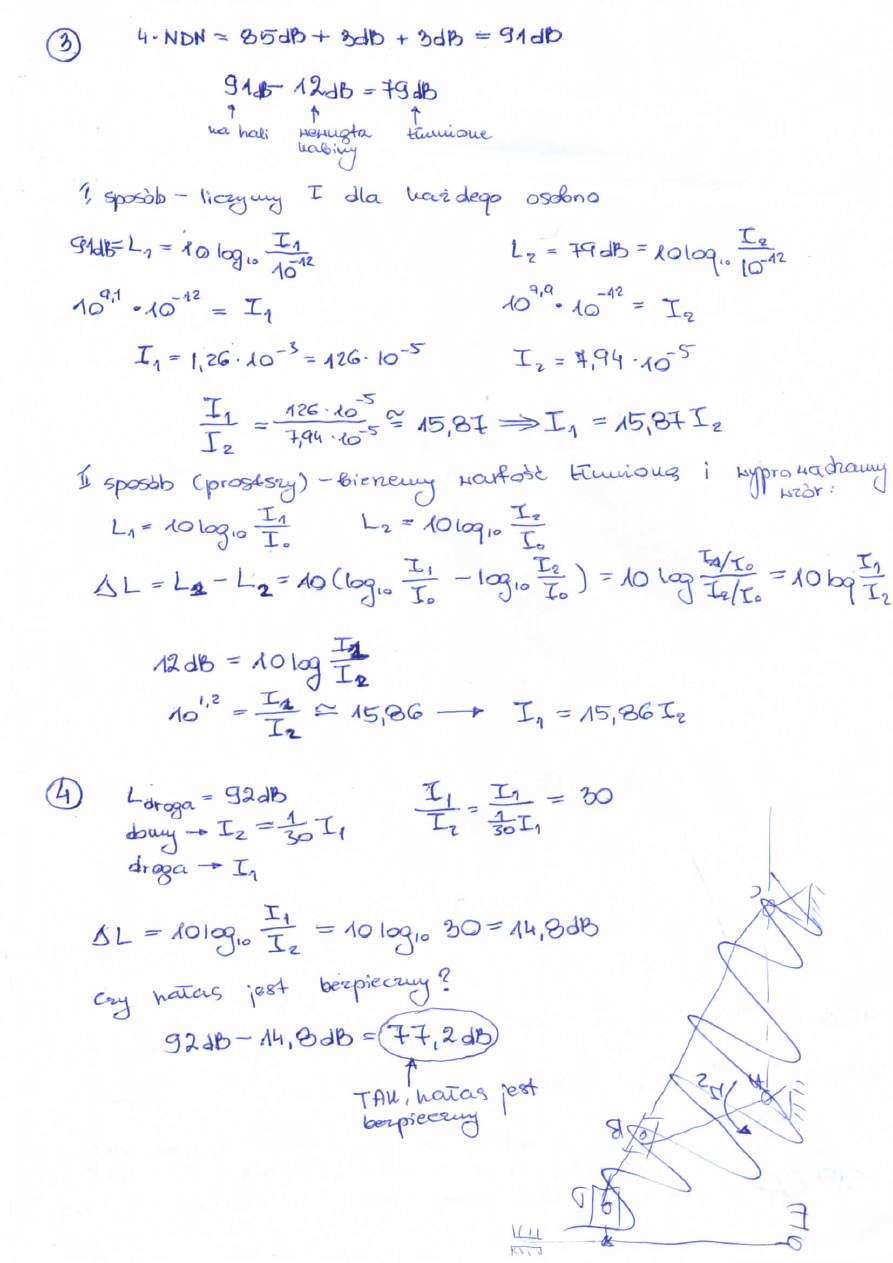 ③ 4·NDN = 85dB + 3dB + 3dB = 91dB
91dB - 12dB = 79dB
↑ ↑ ↑
na hali wewnątrz tłumione
kabiny
I sposób – liczymy I dla każdego osobno
91dB = L₁ = 10 log₁₀ I₁/10⁻¹² L₂ = 79dB = 10 log₁₀ I₂/10⁻¹²
10^9,1 · 10⁻¹² = I₁ 10^7,9 · 10⁻¹² = I₂
I₁ = 1,26·10⁻³ = 126·10⁻⁵ I₂ = 7,94·10⁻⁵
I₁/I₂ = 126·10⁻⁵/7,94·10⁻⁵ ≅ 15,87 ⟹ I₁ = 15,87 I₂
II sposób (prostszy) – bierzemy wartość tłumioną i wyprowadzamy
wzór:
L₁ = 10 log₁₀ I₁/I₀ L₂ = 10 log₁₀ I₂/I₀
ΔL = L₁ - L₂ = 10 (log₁₀ I₁/I₀ - log₁₀ I₂/I₀) = 10 log (I₁/I₀)/(I₂/I₀) = 10 log I₁/I₂
12dB = 10 log I₁/I₂
10^1,2 = I₁/I₂ ≃ 15,86 → I₁ = 15,86 I₂
④ Ldroga = 92dB I₁/I₂ = I₁/(1/30 I₁) = 30
domy → I₂ = 1/30 I₁
droga → I₁
ΔL = 10 log₁₀ I₁/I₂ = 10 log₁₀ 30 = 14,8dB
Czy hałas jest bezpieczny?
92dB - 14,8dB = 77,2dB
↑
TAK, hałas jest
bezpieczny
C
A
B
D